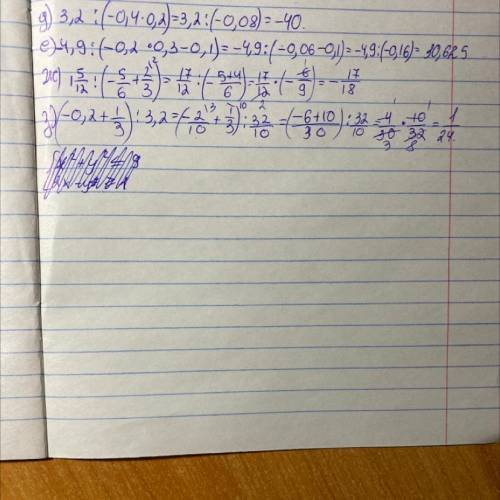 д) 3,2 : (-0,4 · 0,2) = 3,2 : (-0,08) = -40.
е) -4,9 : (-0,2 · 0,3 - 0,1) = -4,9 : (-0,06 - 0,1) = -4,9 : (-0,16) = 30,625
ж) 1 5/12 : (-5/6 + 2/3) = 17/12 : (-5+4/6) = 17/12 · (-6/9) = -17/18
з) (-0,2 + 1/3) : 3,2 = (-2/10 + 1/3) : 32/10 = (-6+10/30) : 32/10 = 4/30 · 10/32 = 1/24.